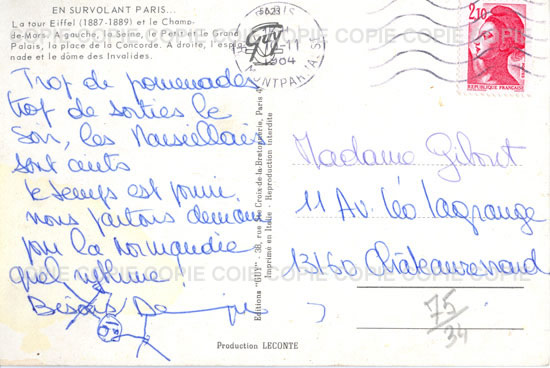 EN SURVOLANT PARIS...
La tour Eiffel (1887-1889) et le Champ-
de-Mars. A gauche, la Seine, le Petit et le Grand
Palais, la place de la Concorde. A droite, l'espla
nade et le dôme des Invalides.
Trop de promenades
trop de sorties le
soir, les Marseillais
sont cuits
le temps est pourri.
nous partons demain
pour la Normandie
quel rythme!
Bisous
Production LECONTE
Editions "GUY" - 38, rue Ste Croix de la Bretonnerie, Paris 4
Imprimé en Italie - Reproduction interdite
PARIS
11
MONTPARNASSE
2,10
REPUBLIQUE FRANÇAISE
Madame Gibout
11 Av. Léo Lagrange
13160 Châteaurenard
75/34
COPIE COPIE COPIE COPIE COPIE COPIE
COPIE COPIE COPIE COPIE COPIE COPIE
COPIE COPIE COPIE COPIE COPIE COPIE